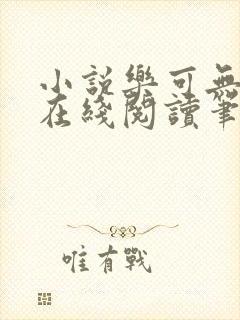 小説樂可無
在綫閱讀筆
唯有戰